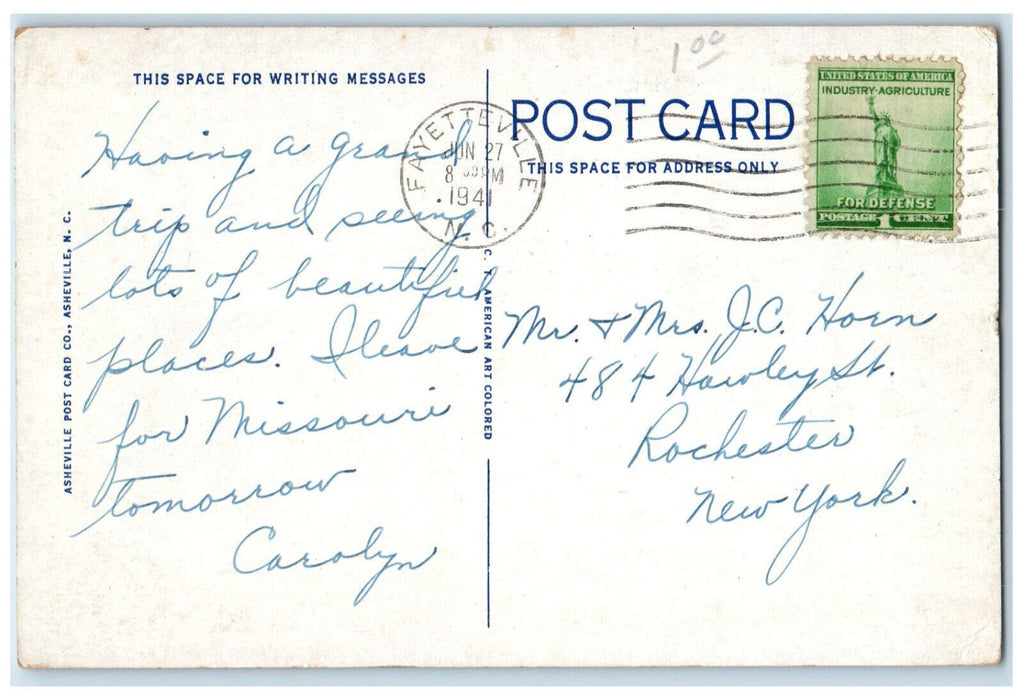 THIS SPACE FOR WRITING MESSAGES
Having a grand
trip and seeing
lots of beautiful
places. I leave
for Missouri
tomorrow
Carolyn
ASHEVILLE POST CARD CO., ASHEVILLE, N. C.
C. T. AMERICAN ART COLORED
FAYETTEVILLE
JUN 27
8 30 PM
1941
N. C.
1 00
POST CARD
THIS SPACE FOR ADDRESS ONLY
UNITED STATES OF AMERICA
INDUSTRY-AGRICULTURE
FOR DEFENSE
POSTAGE 1 CENT
Mr. & Mrs. J.C. Horn
484 Hawley St.
Rochester
New York.